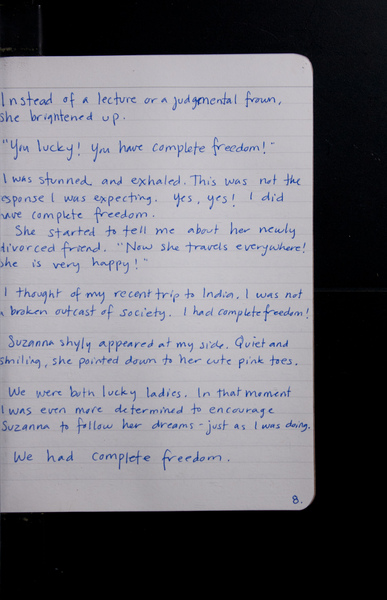 Instead of a lecture or a judgmental frown,
she brightened up.
"You lucky! You have complete freedom!"
I was stunned and exhaled. This was not the
esponse I was expecting. Yes, yes! I did
ave complete freedom.
She started to tell me about her newly
divorced friend. "Now she travels everywhere!
She is very happy!"
I thought of my recent trip to India. I was not
a broken outcast of society. I had complete freedom!
Suzanna shyly appeared at my side. Quiet and
smiling, she pointed down to her cute pink toes.
We were both lucky ladies. In that moment
I was even more determined to encourage
Suzanna to follow her dreams - just as I was doing.
We had complete freedom.
8.